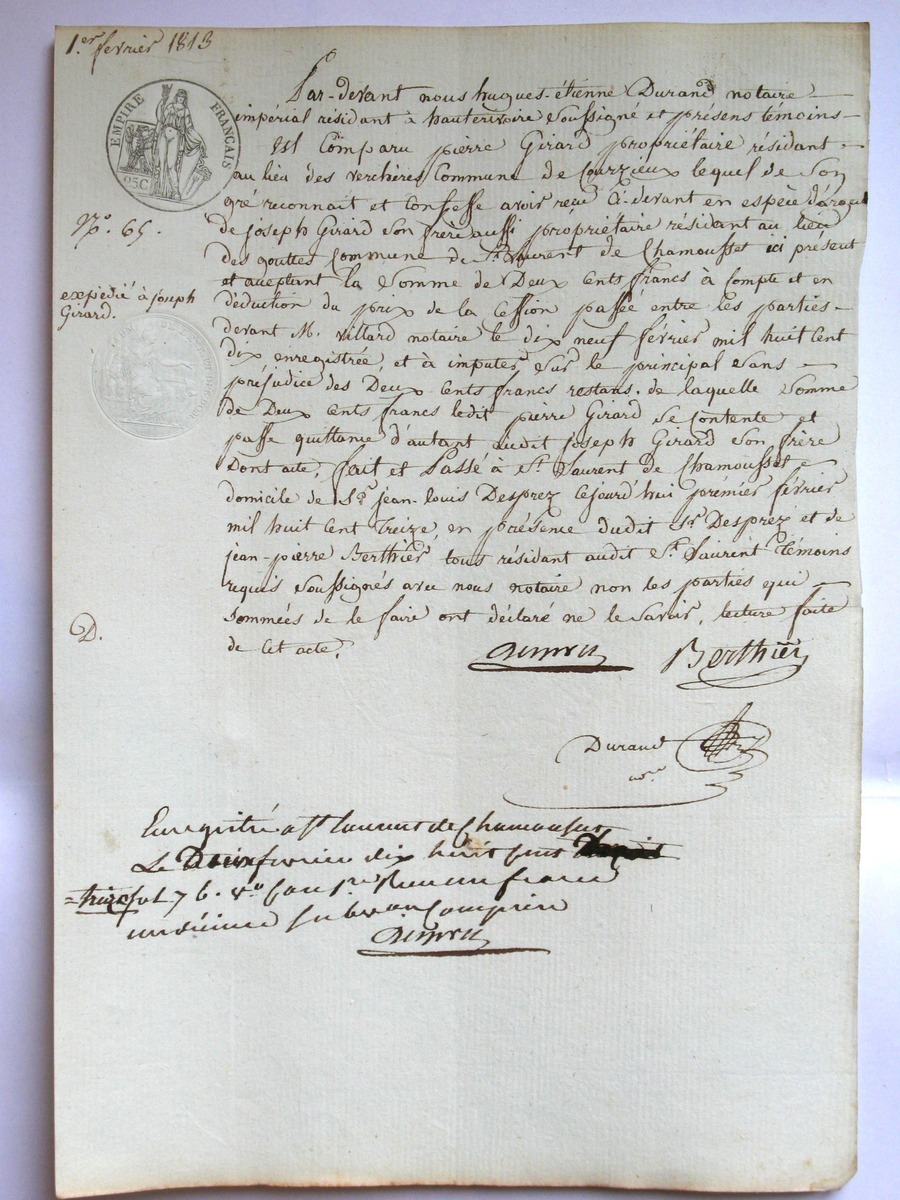 1.er fevrier 1813
EMPIRE FRANÇAIS
25C
N.o 65.
expédié à joseph
Girard.
D.
Par-devant nous hugues-étienne Durand notaire
impérial résidant à hauterivoire soussigné et présens témoins
Est Comparu pierre Girard propriétaire résidant
au lieu des verchères Commune de Courzieux lequel de son
gré reconnait et Confesse avoir reçu Ci-devant en espèce d'argent
de joseph Girard son frère aussi propriétaire résidant au lieu
des gouttes Commune de St. Laurent de Chamousset ici présent
et acceptant la somme de Deux Cents francs à Compte et en
déduction du prix de la Cession passée entre les parties
devant M. villard notaire le dix neuf février mil huit Cent
dix enregistrée, et à imputer sur le principal sans
préjudice des Deux Cents francs restans. de laquelle somme
de Deux Cents francs ledit pierre Girard se Contente et
passe quittance d'autant audit joseph Girard son frère
Dont acte, fait et Passé à St. Laurent de Chamousset
domicile de Sr. jean-louis Desprez Cejourd'hui prémier février
mil huit Cent Treize, en présence dudit Sr. Desprez et de
jean-pierre Berthier, tous résidant audit St. Laurent Témoins
requis soussignés avec nous notaire non les parties qui
sommées de le faire ont déclaré ne le savoir, lecture faite
de Cet acte.
Berthier
Durand
nore
Enregistré a St laurent de Chamousset
Le Deux fevrier dix huit Cent
treize fol 76. vo Case 1re Reçu un franc
un décime subvon Comprise